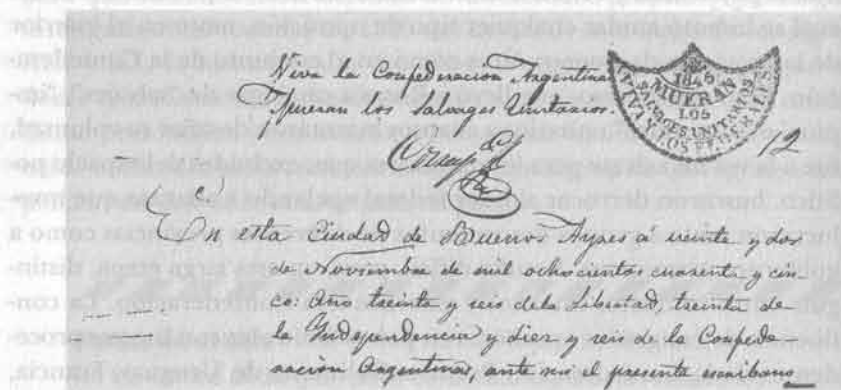 Viva la Confederacion Argentina
Mueran los Salvages Unitarios.
1845
MUERAN
LOS
SALVAGES UNITARIOS
VIVAN LOS FEDERALES
12
En esta Ciudad de Buenos Ayres á veinte y dos
de Noviembre de mil ochocientos cuarenta y cin-
co: Año treinta y seis dela Libertad, treinta de
la Independencia y diez y seis de la Confede-
racion Argentina, ante mi el presente escribano